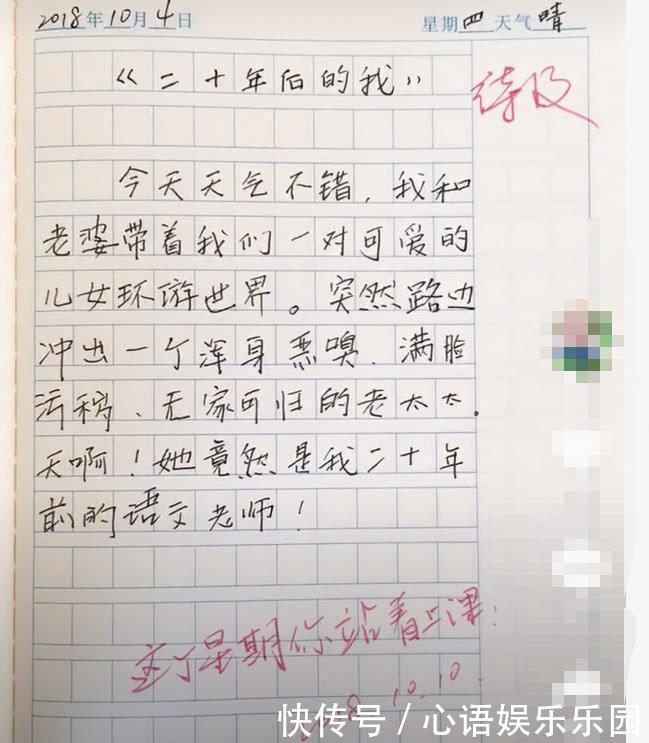 2018年10月4日 星期四 天气晴
《二十年后的我》
待及
今天天气不错，我和
老婆带着我们一对可爱的
儿女环游世界。突然路边
冲出一个浑身恶嗅、满脸
污秽、无家可归的老太太。
天啊！她竟然是我二十年
前的语文老师！
这个星期你站着上课！
2018.10.10.
快传号／心语娱乐乐园